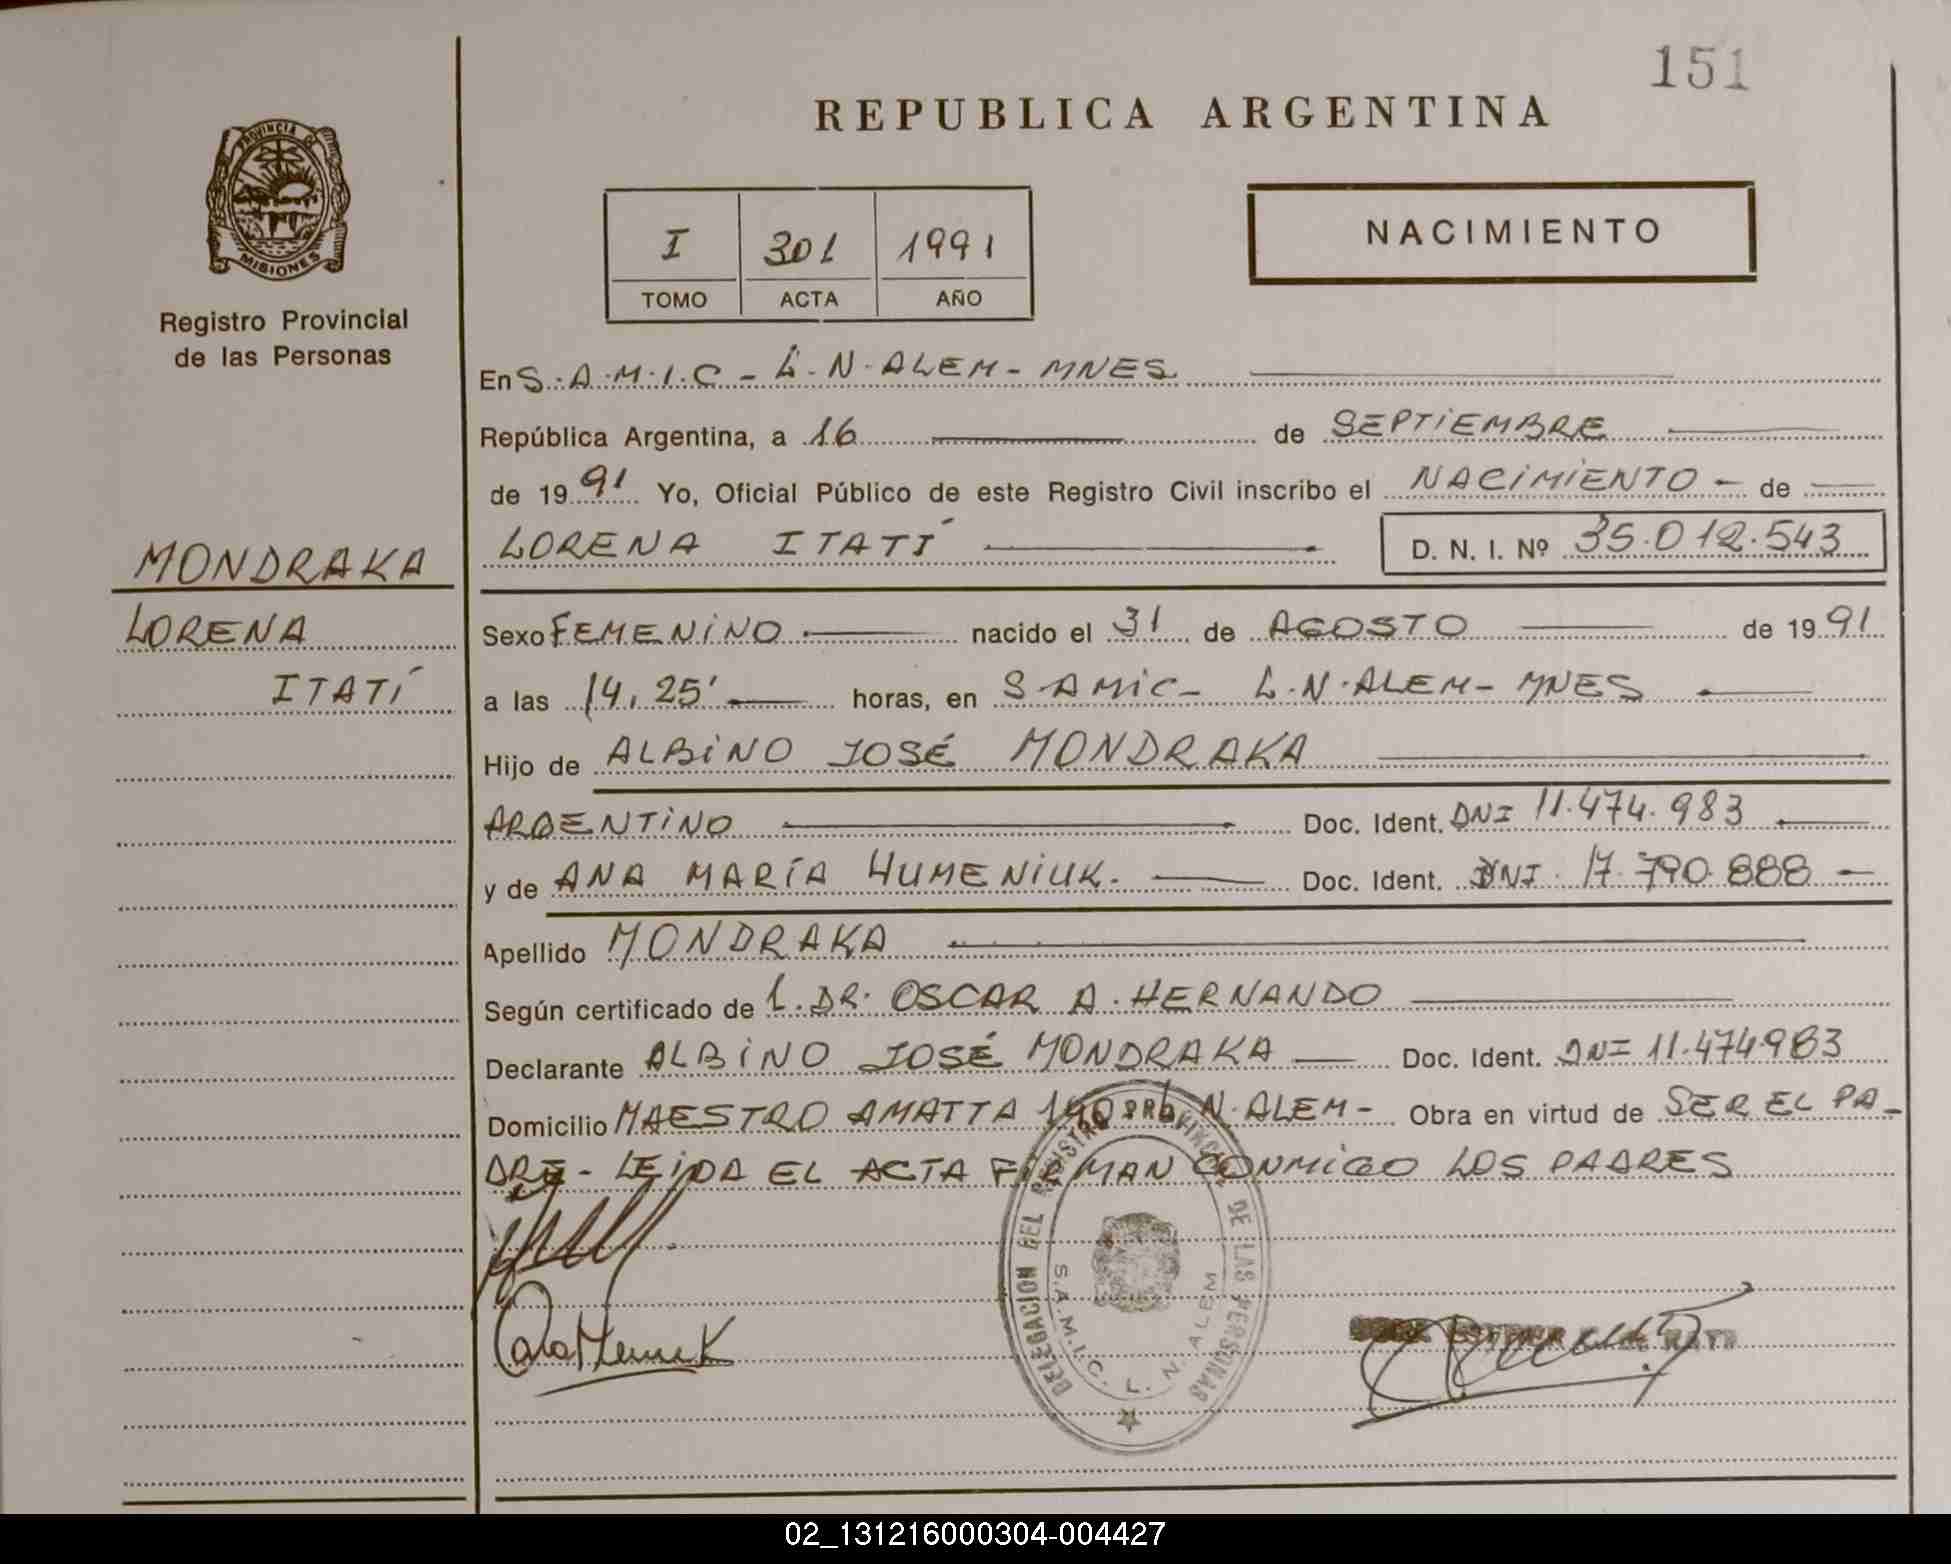 151
REPUBLICA ARGENTINA
PROVINCIA DE
MISIONES
Registro Provincial
de las Personas
I 301 1991
TOMO ACTA AÑO
NACIMIENTO
En S.A.M.I.C - L.N.ALEM - MNES
República Argentina, a 16 de SEPTIEMBRE
de 1991 Yo, Oficial Público de este Registro Civil inscribo el NACIMIENTO - de
MONDRAKA
LORENA ITATÍ D. N. I. Nº 35.012.543
LORENA
ITATÍ
Sexo FEMENINO nacido el 31 de AGOSTO de 1991
a las 14,25' horas, en S.AMIC - L.N.ALEM - MNES
Hijo de ALBINO JOSÉ MONDRAKA
ARGENTINO Doc. Ident. DNI 11.474.983
y de ANA MARÍA HUMENIUK. Doc. Ident. DNI 17.790.888 -
Apellido MONDRAKA
Según certificado de L. DR. OSCAR A. HERNANDO
Declarante ALBINO JOSÉ MONDRAKA Doc. Ident. DNI 11.474983
Domicilio MAESTRO AMATTA N.ALEM - Obra en virtud de SER EL PA-
DRE - LEIDA EL ACTA FIRMAN CONMIGO LOS PADRES
DELEGACION DEL REGISTRO PROVINCIAL DE LAS PERSONAS
S.A.M.I.C. L. N. ALEM
02_131216000304-004427